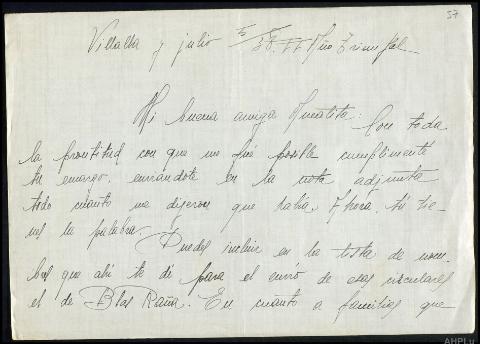 57
Villalba y julio 5/38. II Año Triunfal
Mi buena amiga Amalita: Con toda
la prontitud con que me fué posible cumplimenté
tu encargo, enviándote en la nota adjunta
todo cuanto me dijeron que había. Ahora tú tie-
nes la palabra.
Puedes incluir en la lista de nom-
bres que ahí te di para el envío de esas circulares
el de Blas Raña. En cuanto a familias que
AHPLu